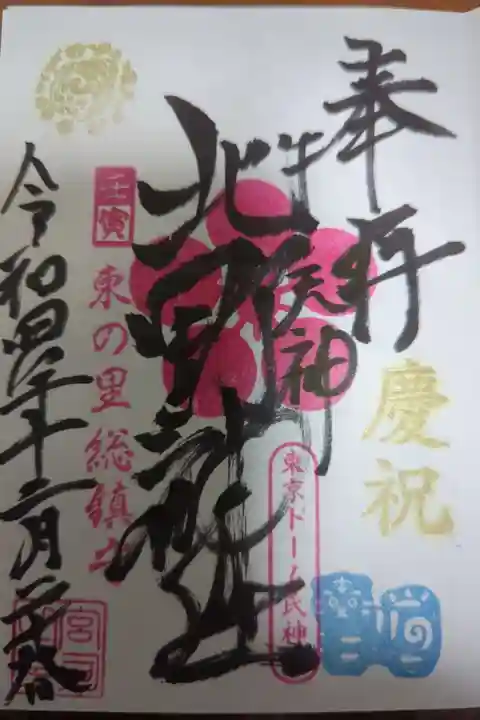 奉拝
慶祝
牛天神
東京ドーム氏神
北野神社
壬寅
東の里総鎮守
令和四年十二月
宮司